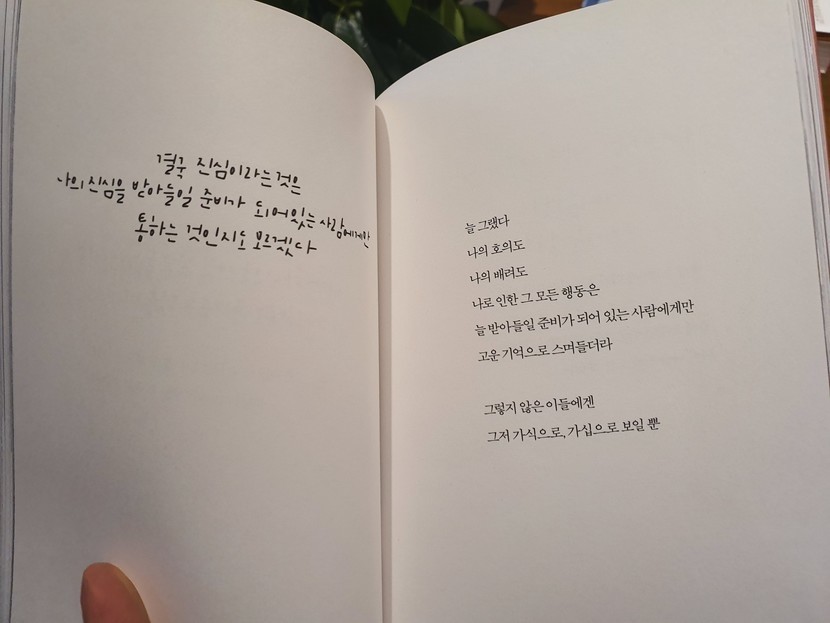 결국 진심이라는 것은
나의 진심을 받아들일 준비가 되어있는 사람에게만
통하는 것인지도 모르겠다
늘 그랬다
나의 호의도
나의 배려도
나로 인한 그 모든 행동은
늘 받아들일 준비가 되어 있는 사람에게만
고운 기억으로 스며들더라
그렇지 않은 이들에겐
그저 가식으로, 가십으로 보일 뿐